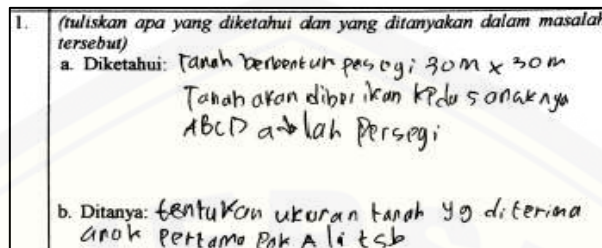 1. (tuliskan apa yang diketahui dan yang ditanyakan dalam masalah
tersebut)
a. Diketahui: Tanah berbentuk persegi 30m x 30m
Tanah akan diberikan kedua anaknya
ABCD adalah Persegi
b. Ditanya: tentukan ukuran tanah yg diterima
anak pertama Pak Ali tsb